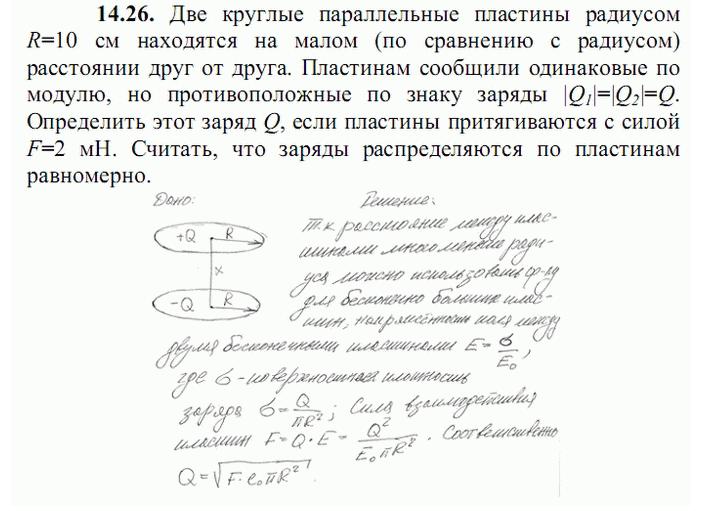 14.26. Две круглые параллельные пластины радиусом
R=10 см находятся на малом (по сравнению с радиусом)
расстоянии друг от друга. Пластинам сообщили одинаковые по
модулю, но противоположные по знаку заряды |Q₁|=|Q₂|=Q.
Определить этот заряд Q, если пластины притягиваются с силой
F=2 мН. Считать, что заряды распределяются по пластинам
равномерно.
Дано: Решение:
Т.к расстояние между плас-
тинами много меньше ради-
уса можно использовать ф-лу
для бесконечно больших плас-
тин, напряжённость поля между
+Q R
x
-Q R
двумя бесконечными пластинами E = σ/E₀,
где σ - поверхностная плотность
заряда σ = Q/πR²; Сила взаимодействия
пластин F = Q·E = Q²/E₀πR². Соответственно
Q = √F·ε₀πR².